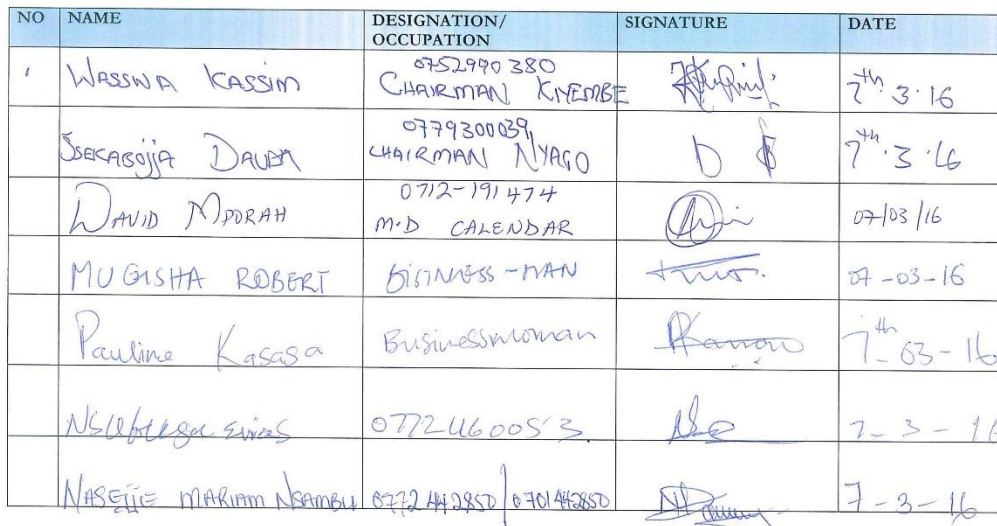 NO NAME DESIGNATION/ OCCUPATION SIGNATURE DATE
WASSWA KASSIM 0752990380 CHAIRMAN KIYEMBE 7th 3.16
SSEKABOJJA DAUDA 0779300039, CHAIRMAN NYAGO 7th.3.16
DAVID 0712-191474 M.D CALENDAR 07/03/16
MUGISHA ROBERT 07-03-16
Pauline Kasasa Businesswoman 7th-03-16
0772460053. 7-3-16
NASEJJE MARIAM NSAMBU 0772442850/0701442850 7-3-16